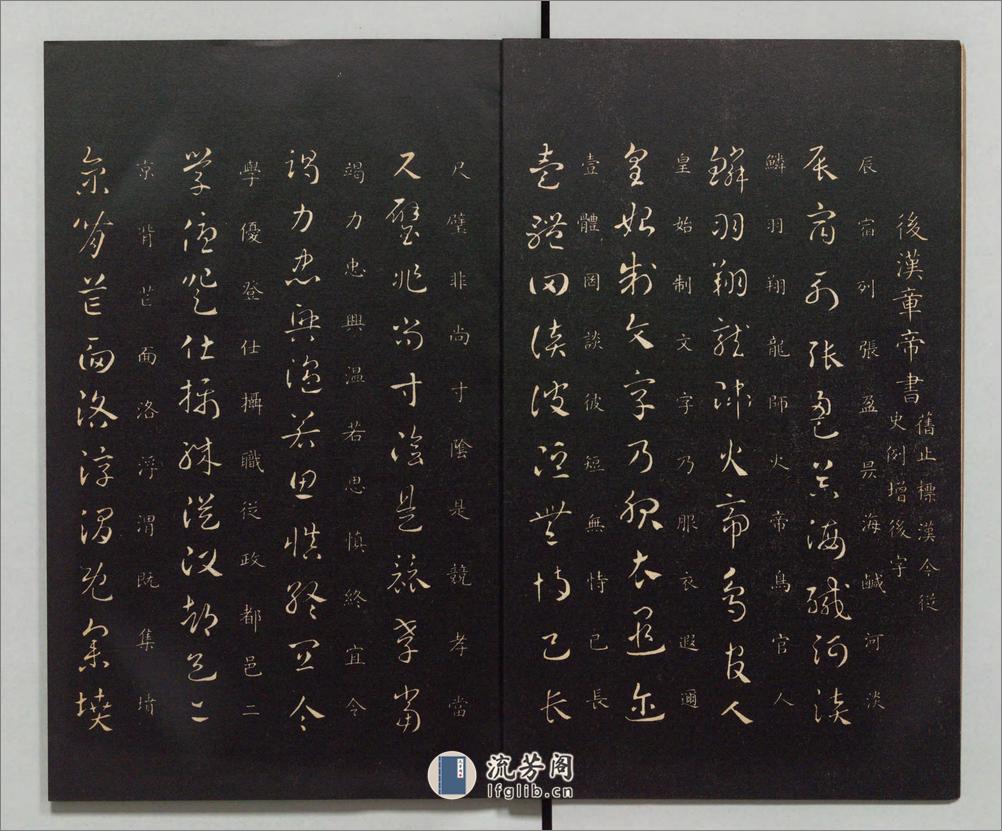 後漢章帝書
舊止標漢今從
史例增後字
辰宿列張盈昃海鹹河淡
辰宿列張盈昃海鹹河淡
鱗羽翔龍師火帝鳥官人
鱗羽翔龍師火帝鳥官人
皇始制文字乃服衣遐邇
皇始制文字乃服衣遐邇
壹體罔談彼短無恃己長
壹體罔談彼短無恃己長
尺璧非尚寸陰是競孝當
尺璧非尚寸陰是競孝當
竭力忠興温若思慎終宜令
竭力忠興温若思慎終宜令
學優登仕攝職從政都邑二
學優登仕攝職從政都邑二
京背芒面洛浮渭既集墳
京背芒面洛浮渭既集墳
流芳阁
lfglib.cn